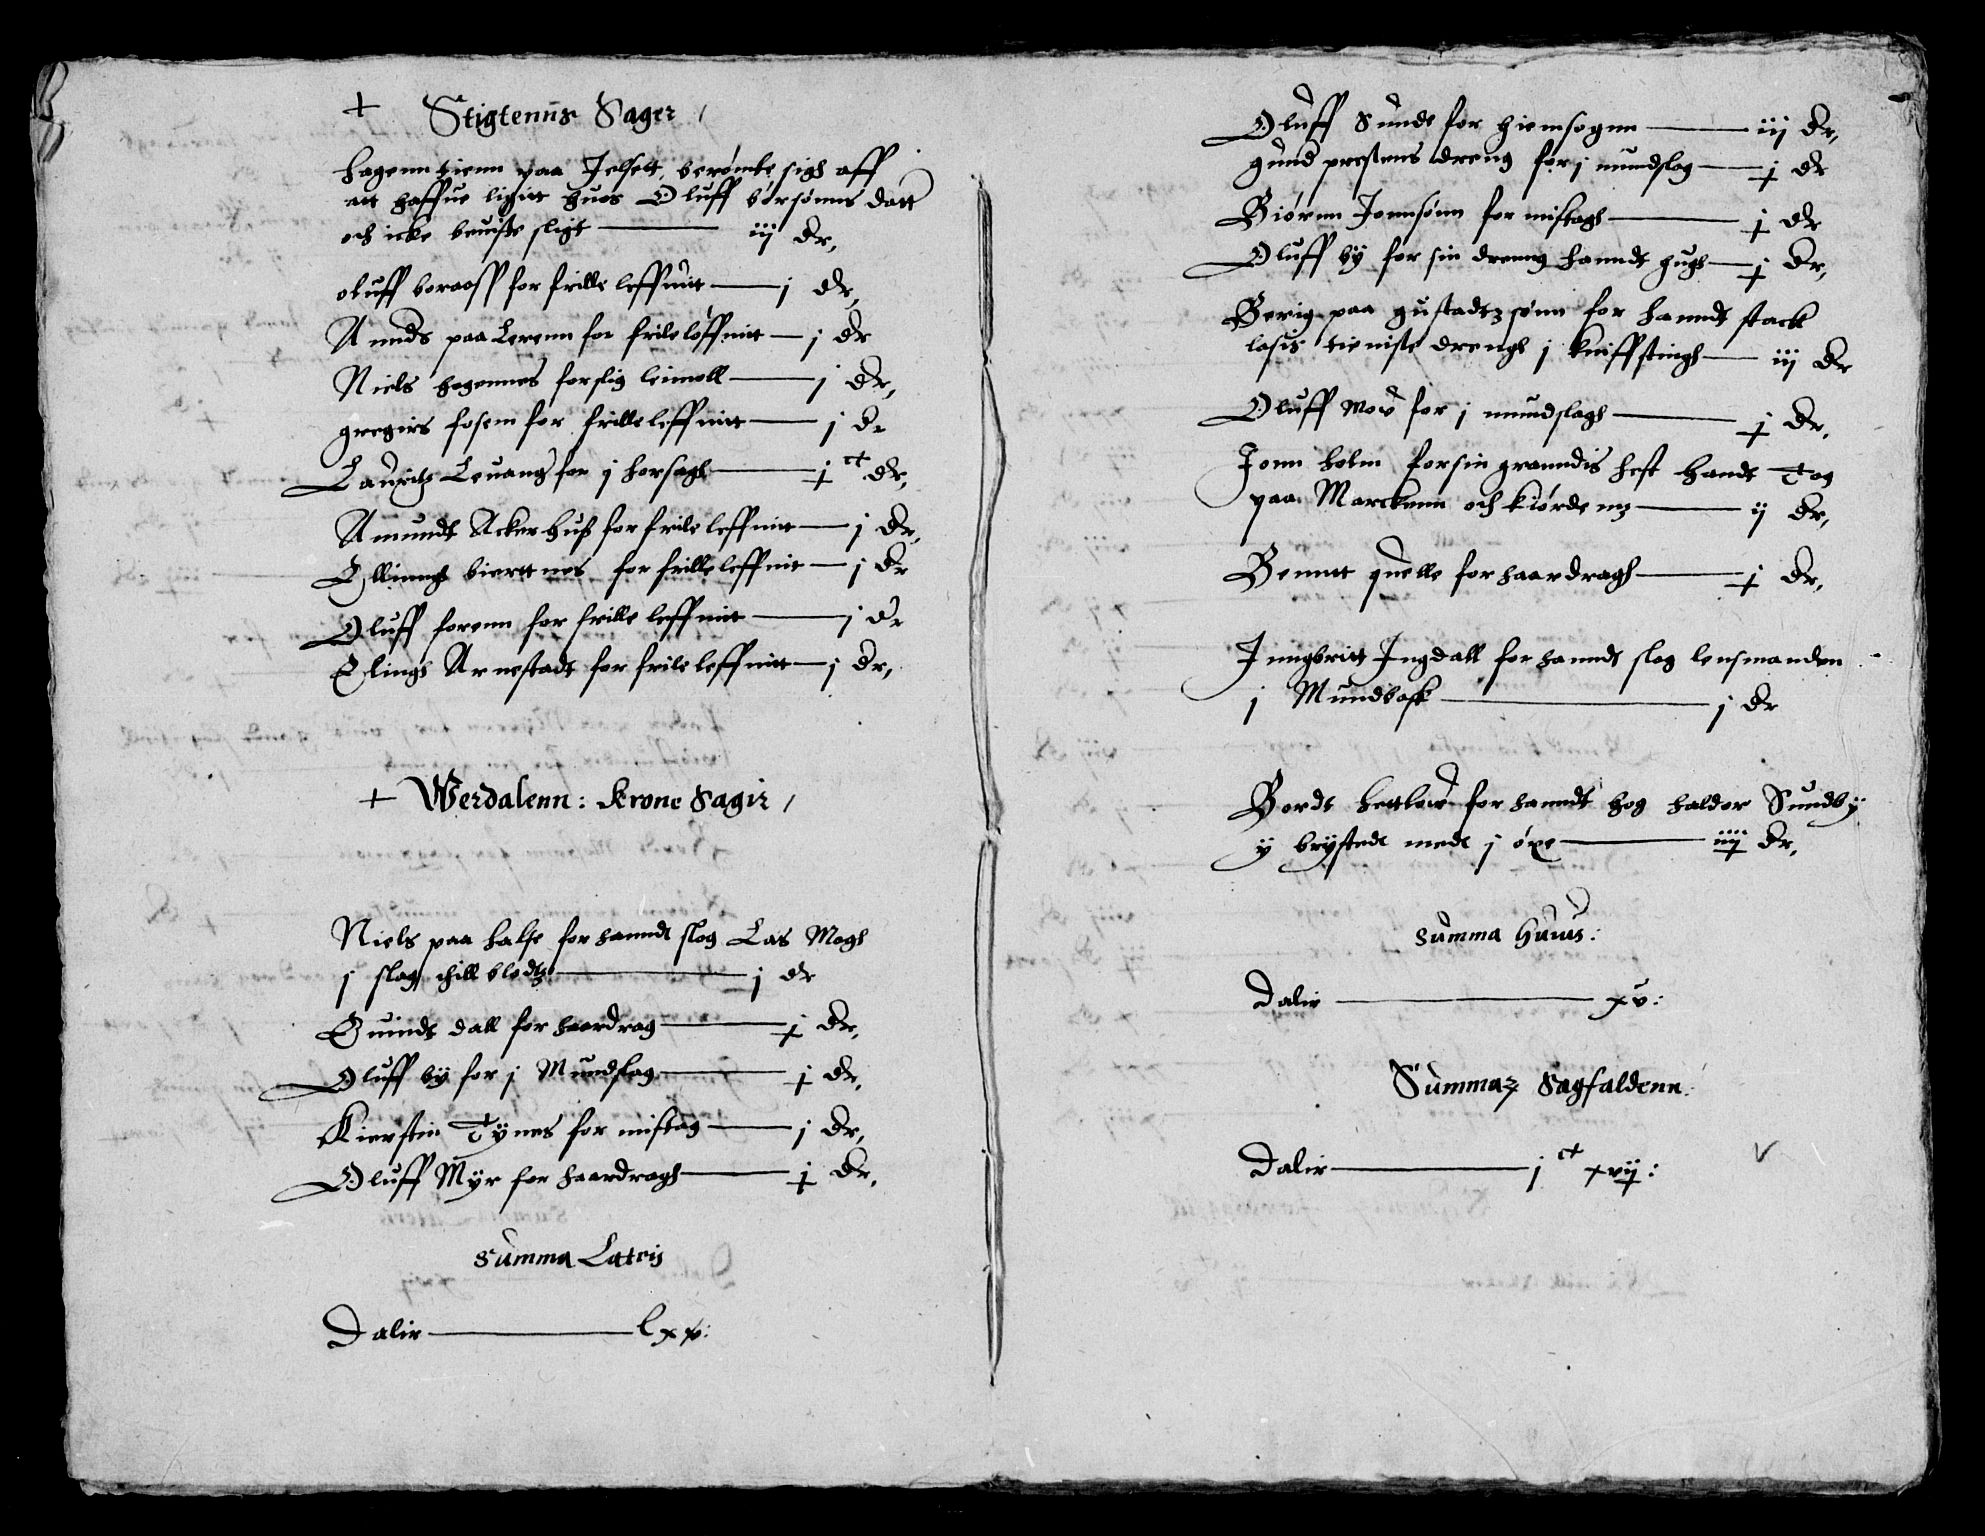 + Stigtenns Sager /
Hagenn tienn paa Jelsett, berømte sigh aff
att haffue ligitt hues Oluff børsønns datt
och icke beuiste sligt — iij dr,
oluff boraass for frille leffnit — j dr,
Amuds paa Lerenn for frile løffnit — j dr
Niels hogennes for slig leimoll — j dr,
gregirs fosem for frille leffnitt — j dr
Lauritz Leuang for j horsagh — j ct dr,
Amundt Ackerhuß for frile leffnitt — j dr,
Ellinngh biertnes for frille leffnit — j dr
Oluff forenn for frille leffnitt — j dr
Elingh Arnestadt for frile leffnitt — j dr,
+ Werdalenn: Krone Sagir /
Niels paa halse for hanndt slog Las Mogh
j slag, chill blodtz — j dr
Suindt dall for haardrag — j dr,
Oluff by for j Mundslag — j dr,
Kierstin Tÿnes for mistag — j dr,
Oluff Mÿr for haardragh — j dr,
Summa Lateris
Dalir — lxx:
Oluff Sunde for hiemsognn — iij dr,
gund prestens dreng for j mundslag — j dr
Biørnn Jonnsønn for mistagh — j dr
Oluff by for sin drenng hanndt hugh — j dr,
Berig paa gustadtz sønn for hanndt stack
lasis tieniste drengh j kniffstingh — iij dr
Oluff Mov for j mundslagh — j dr,
Jonn holm for sin granndis hest handt Tog
paa Marckenn och kiørde mz — ij dr,
Benntt quelle for haardragh — j dr,
Jnngbritt Jngdall for hanndt slog lensmanden
j Mundbask — j dr
Bordt hettlow for hanndt hog haldor Sundbÿ
ÿ brÿstedt medt j øxe — iiij dr,
Summa Huius:
Dalir — xv:
Summaz Sagfaldenn.
Dalir — j ct xvij: